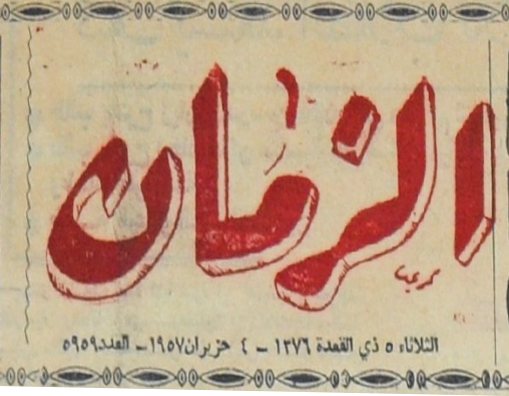 الزمان
الثلاثاء ٥ ذي القعدة ١٣٧٦ – ٤ حزيران ١٩٥٧ – العدد ٥٩٥٩